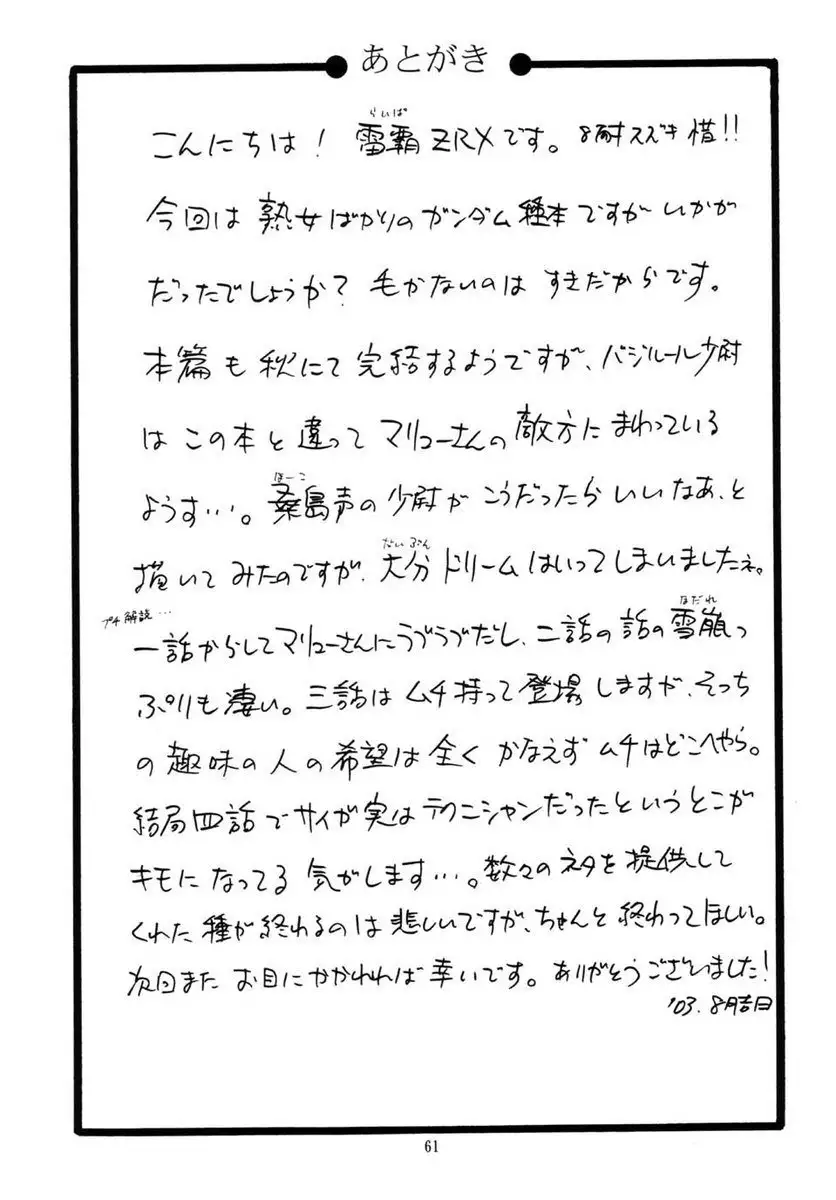 あとがき
こんにちは! 雷覇ZRXです。8耐スズキ惜!!
らいぱ
今回は熟女ばかりのガンダム種本ですがいかが
だったでしょうか? 毛がないのはすきだからです。
本篇も秋にて完結するようですが、バジルール少尉
はこの本と違ってマリューさんの敵方にまわっている
ようす…。桑島声の少尉がこうだったらいいなあ、と
ほーこ
描いてみたのですが、大分ドリームはいってしまいましたネ。
だいぶん
プチ解説…
一話からしてマリューさんにラブラブだし、二話の話の雪崩っ
なだれ
ぷりも凄い。三話はムチ持って登場しますが、そっち
の趣味の人の希望は全くかなえずムチはどこへやら。
結局四話でサイが実はテクニシャンだったというとこが
キモになってる気がします…。数々のネタを提供して
くれた種が終わるのは悲しいですが、ちゃんと終わってほしい。
次回またお目にかかわれれば幸いです。ありがとうございました!
'03. 8月吉日
61